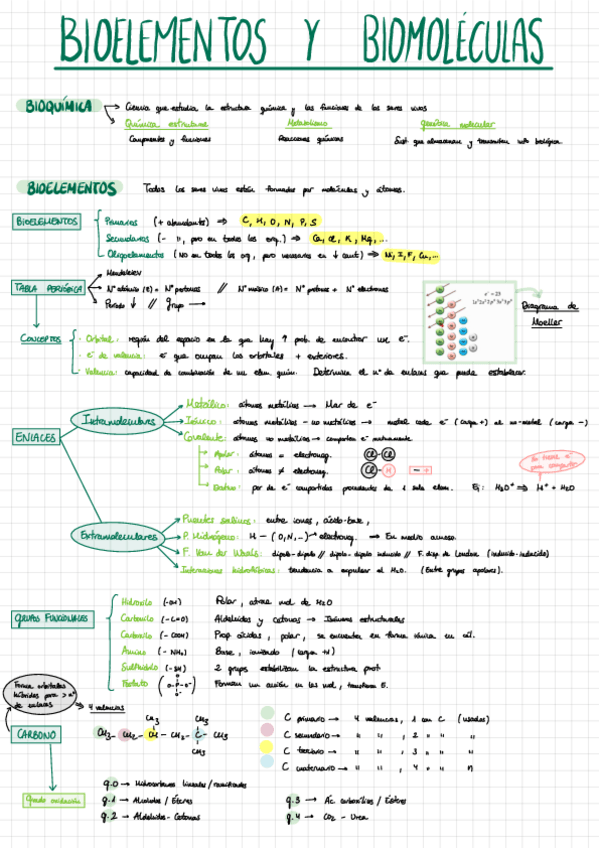 BIOELEMENTOS Y BIOMOLÉCULAS
BIOQUÍMICA → Ciencia que estudia la estructura química y las funciones de los seres vivos
Química estructural Metabolismo genética molecular
Componentes y funciones Reacciones químicas Sust que almacenan y transmiten info biológica.
BIOELEMENTOS Todos los seres vivos están formados por moléculas y átomos.
BIOELEMENTOS
Primarios (+ abundantes) ⇒ C, H, O, N, P, S
Secundarios (- ", pero en todos los org.) ⇒ Ca, Cl, K, Mg,...
Oligoelementos (No en todos los org, pero necesarios en ↓ cant) ⇒ N, I, F, Cu,...
TABLA PERIÓDICA
Mendeleiev
Nº atómico (Z) = Nº protones // Nº másico (A) = Nº protones + Nº electrones
Periodo ↓ // grup →
Diagrama de Moeller
CONCEPTOS
Orbital: región del espacio en la que hay ↑ prob. de encontrar un e⁻.
e⁻ de valencia: e⁻ que ocupan los orbitales + exteriores.
Valencia: capacidad de combinación de un elem. quím. Determina el nº de enlaces que puede establecer.
ENLACES
Intramoleculares
Metálico: átomos metálicos → Mar de e⁻
Iónico: átomos metálicos - no metálicos → metal cede e⁻ (carga +) al no-metal (carga -)
Covalente: átomos no metálicos → comparten e⁻
Apolar: átomos = electroneg. Cl-Cl
Polar: átomos ≠ electroneg. Cl-H
Dativo: par de e⁻ compartidos procedentes de 1 solo elem. Ej: H₃O⁺ ⇒ H⁺ + H₂O
Extramoleculares
Puentes salinos: entre iones, ácido-base,
P. Hidrógeno: H - (O,N,..) electroneg. → En medio acuoso.
F. Van der Waals: dipolo-dipolo // dipolo-dipolo inducido // F. disp. de London (inducido-inducido)
Interacciones hidrofóbicas: tendencia a expulsar el H₂O. (Entre grupos apolares).
GRUPOS FUNCIONALES
Hidroxilo (-OH) Polar, atrae mol de H₂O
Carbonilo (-C=O) Aldehídos y cetonas → Isómeros estructurales
Carboxilo (-COOH) Prop ácidas, polar, se encuentra en forma iónica en cél.
Amino (-NH₂) Base, ionizado (carga +1)
Sulfhidrilo (-SH) 2 grupos estabilizan la estructura prot
Fosfato Forman un anión en las mol, transfiere E.
Forma orbitales híbridos para > nº de enlaces
⇒ 4 valencias
CARBONO
CH₃ CH₃
CH₃ - CH₂ - CH - CH₂ - C - CH₃
CH₃
C primario → 4 valencias, 1 con C (usadas)
C secundario → " ", 2 " " "
C terciario → " ", 3 " " "
C cuaternario → " ", 4 " " "
Grado oxidación
g.0 → Hidrocarburos lineales / ramificados
g.1 → Alcoholes / Éteres
g.2 → Aldehídos - Cetonas
g.3 → Ác. carboxílicos / Ésteres
g.4 → CO₂ - Urea